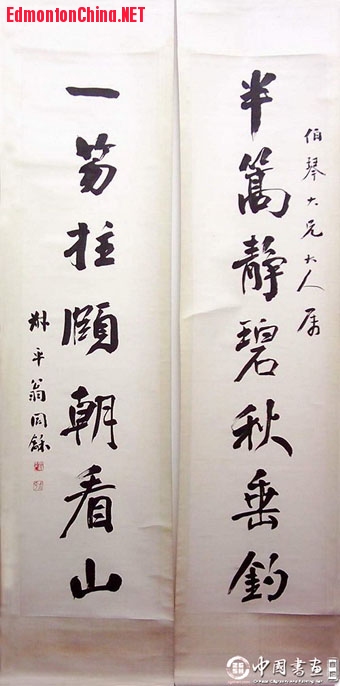 EdmontonChina.NET
伯琴大兄大人属
半篙靜碧秋垂釣
一笏拄頤朝看山
叔平翁同龢
中国書画